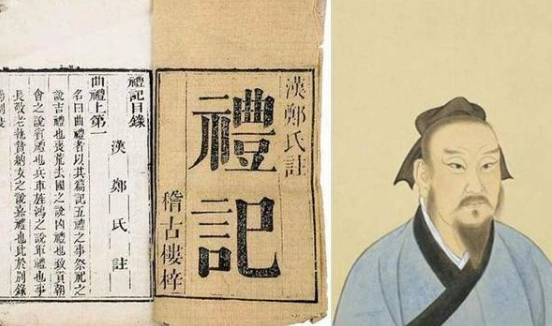 漢鄭氏註
禮記
稽古樓梓
禮記目錄
漢鄭氏註
曲禮上第一
名曰曲禮者以其篇記五禮之事祭祀之
說吉禮也喪荒去國之說凶禮也致貢朝
會之說賓禮也兵車旌鴻之說軍禮也事
長敬老執贄納女之說嘉禮也此於別錄